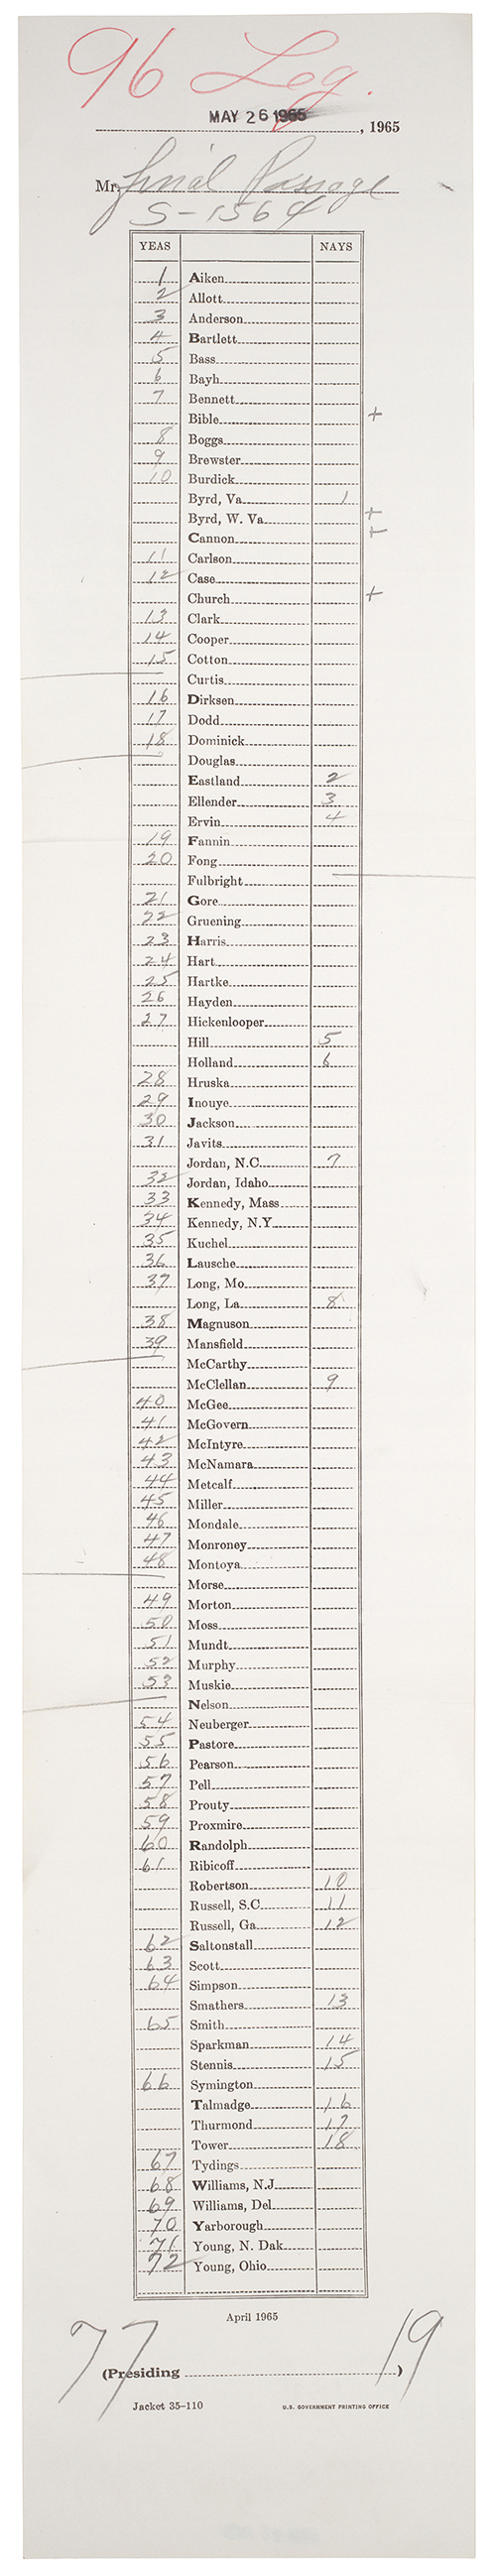 96 Leg.
MAY 26 1965
, 1965
Mr. Final Passage
S-1564
YEAS NAYS
1 Aiken
2 Allott
3 Anderson
4 Bartlett
5 Bass
6 Bayh
7 Bennett
Bible +
8 Boggs
9 Brewster
10 Burdick
Byrd, Va 1
Byrd, W. Va +
Cannon +
11 Carlson
12 Case
Church +
13 Clark
14 Cooper
15 Cotton
Curtis
16 Dirksen
17 Dodd
18 Dominick
Douglas
Eastland 2
Ellender 3
Ervin 4
19 Fannin
20 Fong
Fulbright
21 Gore
22 Gruening
23 Harris
24 Hart
25 Hartke
26 Hayden
27 Hickenlooper
Hill 5
Holland 6
28 Hruska
29 Inouye
30 Jackson
31 Javits
Jordan, N.C. 7
32 Jordan, Idaho
33 Kennedy, Mass
34 Kennedy, N.Y.
35 Kuchel
36 Lausche
37 Long, Mo
Long, La 8
38 Magnuson
39 Mansfield
McCarthy
McClellan 9
40 McGee
41 McGovern
42 McIntyre
43 McNamara
44 Metcalf
45 Miller
46 Mondale
47 Monroney
48 Montoya
Morse
49 Morton
50 Moss
51 Mundt
52 Murphy
53 Muskie
Nelson
54 Neuberger
55 Pastore
56 Pearson
57 Pell
58 Prouty
59 Proxmire
60 Randolph
61 Ribicoff
Robertson 10
Russell, S.C. 11
Russell, Ga 12
62 Saltonstall
63 Scott
64 Simpson
Smathers 13
65 Smith
Sparkman 14
Stennis 15
66 Symington
Talmadge 16
Thurmond 17
Tower 18
67 Tydings
68 Williams, N.J.
69 Williams, Del
70 Yarborough
71 Young, N. Dak
72 Young, Ohio
April 1965
77 19
(Presiding )
Jacket 35-110 U.S. GOVERNMENT PRINTING OFFICE